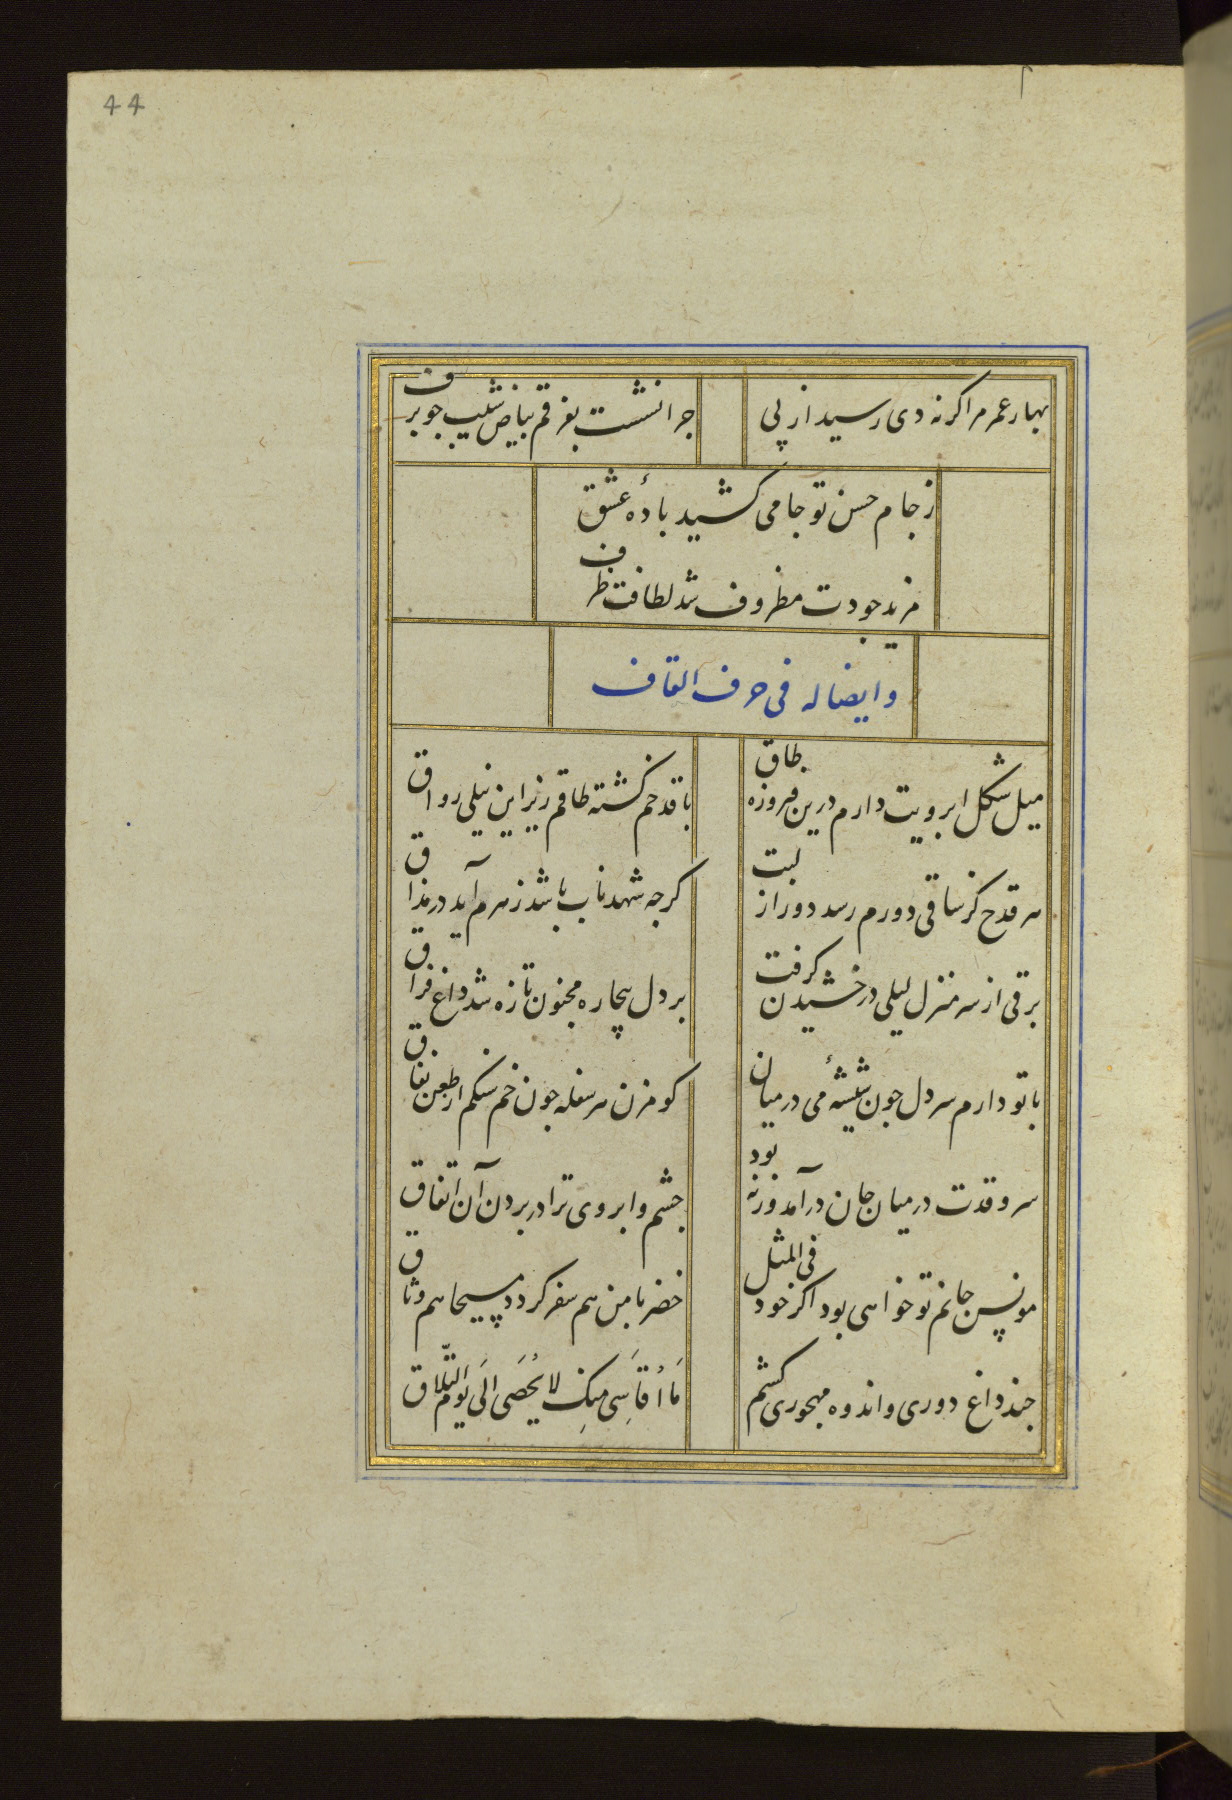 44
بهار عمر مرا کرنه دی رسید از پی
جرا نشست بفرقم بیاض شیب جو برف
ز جام حسن تو جامی کشید بادهٔ عشق
مزید جودت مظروف شد لطافت ظرف
وایضا له فی حرف القاف
میل شکل ابرویت دارم درین فیروزه طاق
با قد خم کشته طاقم زیر این نیلی رواق
هر قدح کز ساقی دورم رسد دور از لبت
کرجه شهد ناب باشد زهرم آید در مذاق
برقی از سر منزل لیلی درخشیدن کرفت
بر دل بیچاره مجنون تازه شد داغ فراق
با تو دارم سر دل جون شیشهٔ می در میان
کو مزن هر سفله جون خم سنکم از طعن نفاق
سرو قدت در میان جان درآمد ورنه بود
جشم و ابروی ترا در بردن آن اتفاق
مونس جانم تو خواهی بود اکر خود فی المثل
خضر با من هم سفر کردد مسیحا هم وثاق
جند داغ دوری و اندوه مهجوری کشم
مَا اُقَاسِی مِنکِ لا یُحْصَی الَی یَوْم التّلاق